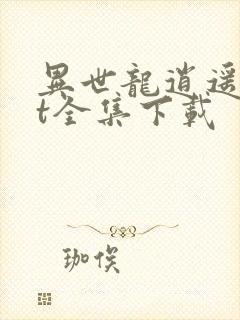 異世龍逍遥
t全集下載
珈俟